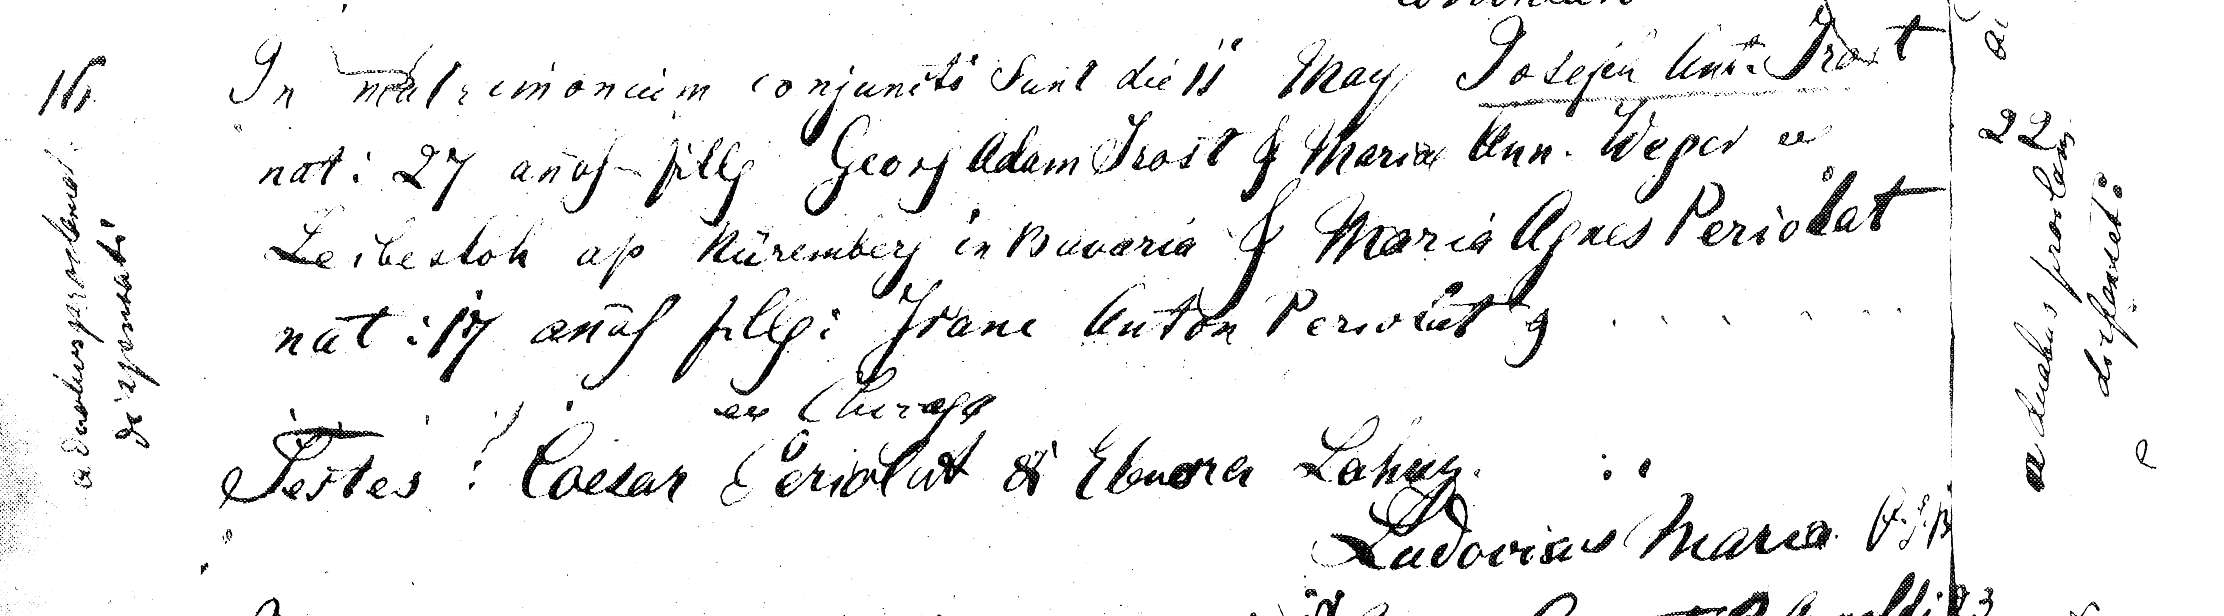 16
a duobus proclama
dispensati
In matrimonium conjuncti Sunt die 11 May Joseph Ant. Trost
nat: 27 anos filg Georg Adam Trost & Maria Ann. Weper ex
Leibestok ap Nüremberg in Bavaria & Maria Agnes Periolat
nat: 17 anos filg: Franc Anton Periolat &
ex Chicago
Testes: Caesar Periolat & Lahuy.
Ludovicus Maria
22
a duabus proclam
dispensati